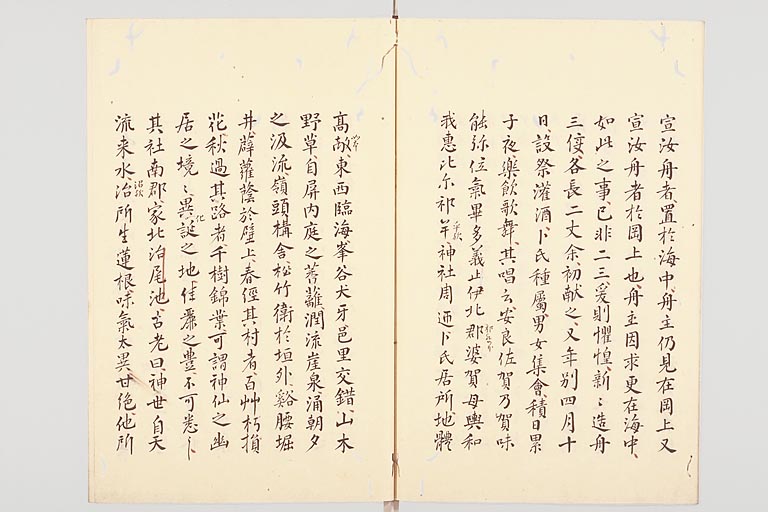 宣汝舟者置於海中舟主仍見在岡上又
宣汝舟者於岡上也舟主因求更在海中
如此之事已非二三爰則懼惶新〻造舟
三隻各長二丈余初献之又年別四月十
日設祭灌酒卜氏種屬男女集會積日累
夜樂飲歌舞其唱云安良佐賀乃賀味
能弥位氣畢多義止伊北郡婆賀母與和
我惠比尓祁牟神社周迊卜氏居所地體
高敞東西臨海峯谷犬牙邑里交錯山木
野草自屏內庭之蕃蘺潤流崖泉涌朝夕
之汲流嶺頭構舍松竹衛於垣外谿腰堀
井薜蘿蔭於壁上春經其村者百艸
花秋過其路者千樹錦葉可謂神仙之幽
居之境〻異誕之地佳麗之豊不可悉之
其社南郡家北沿尾池古老曰神世自天
流来水沼所生蓮根味氣太異甘絶他所